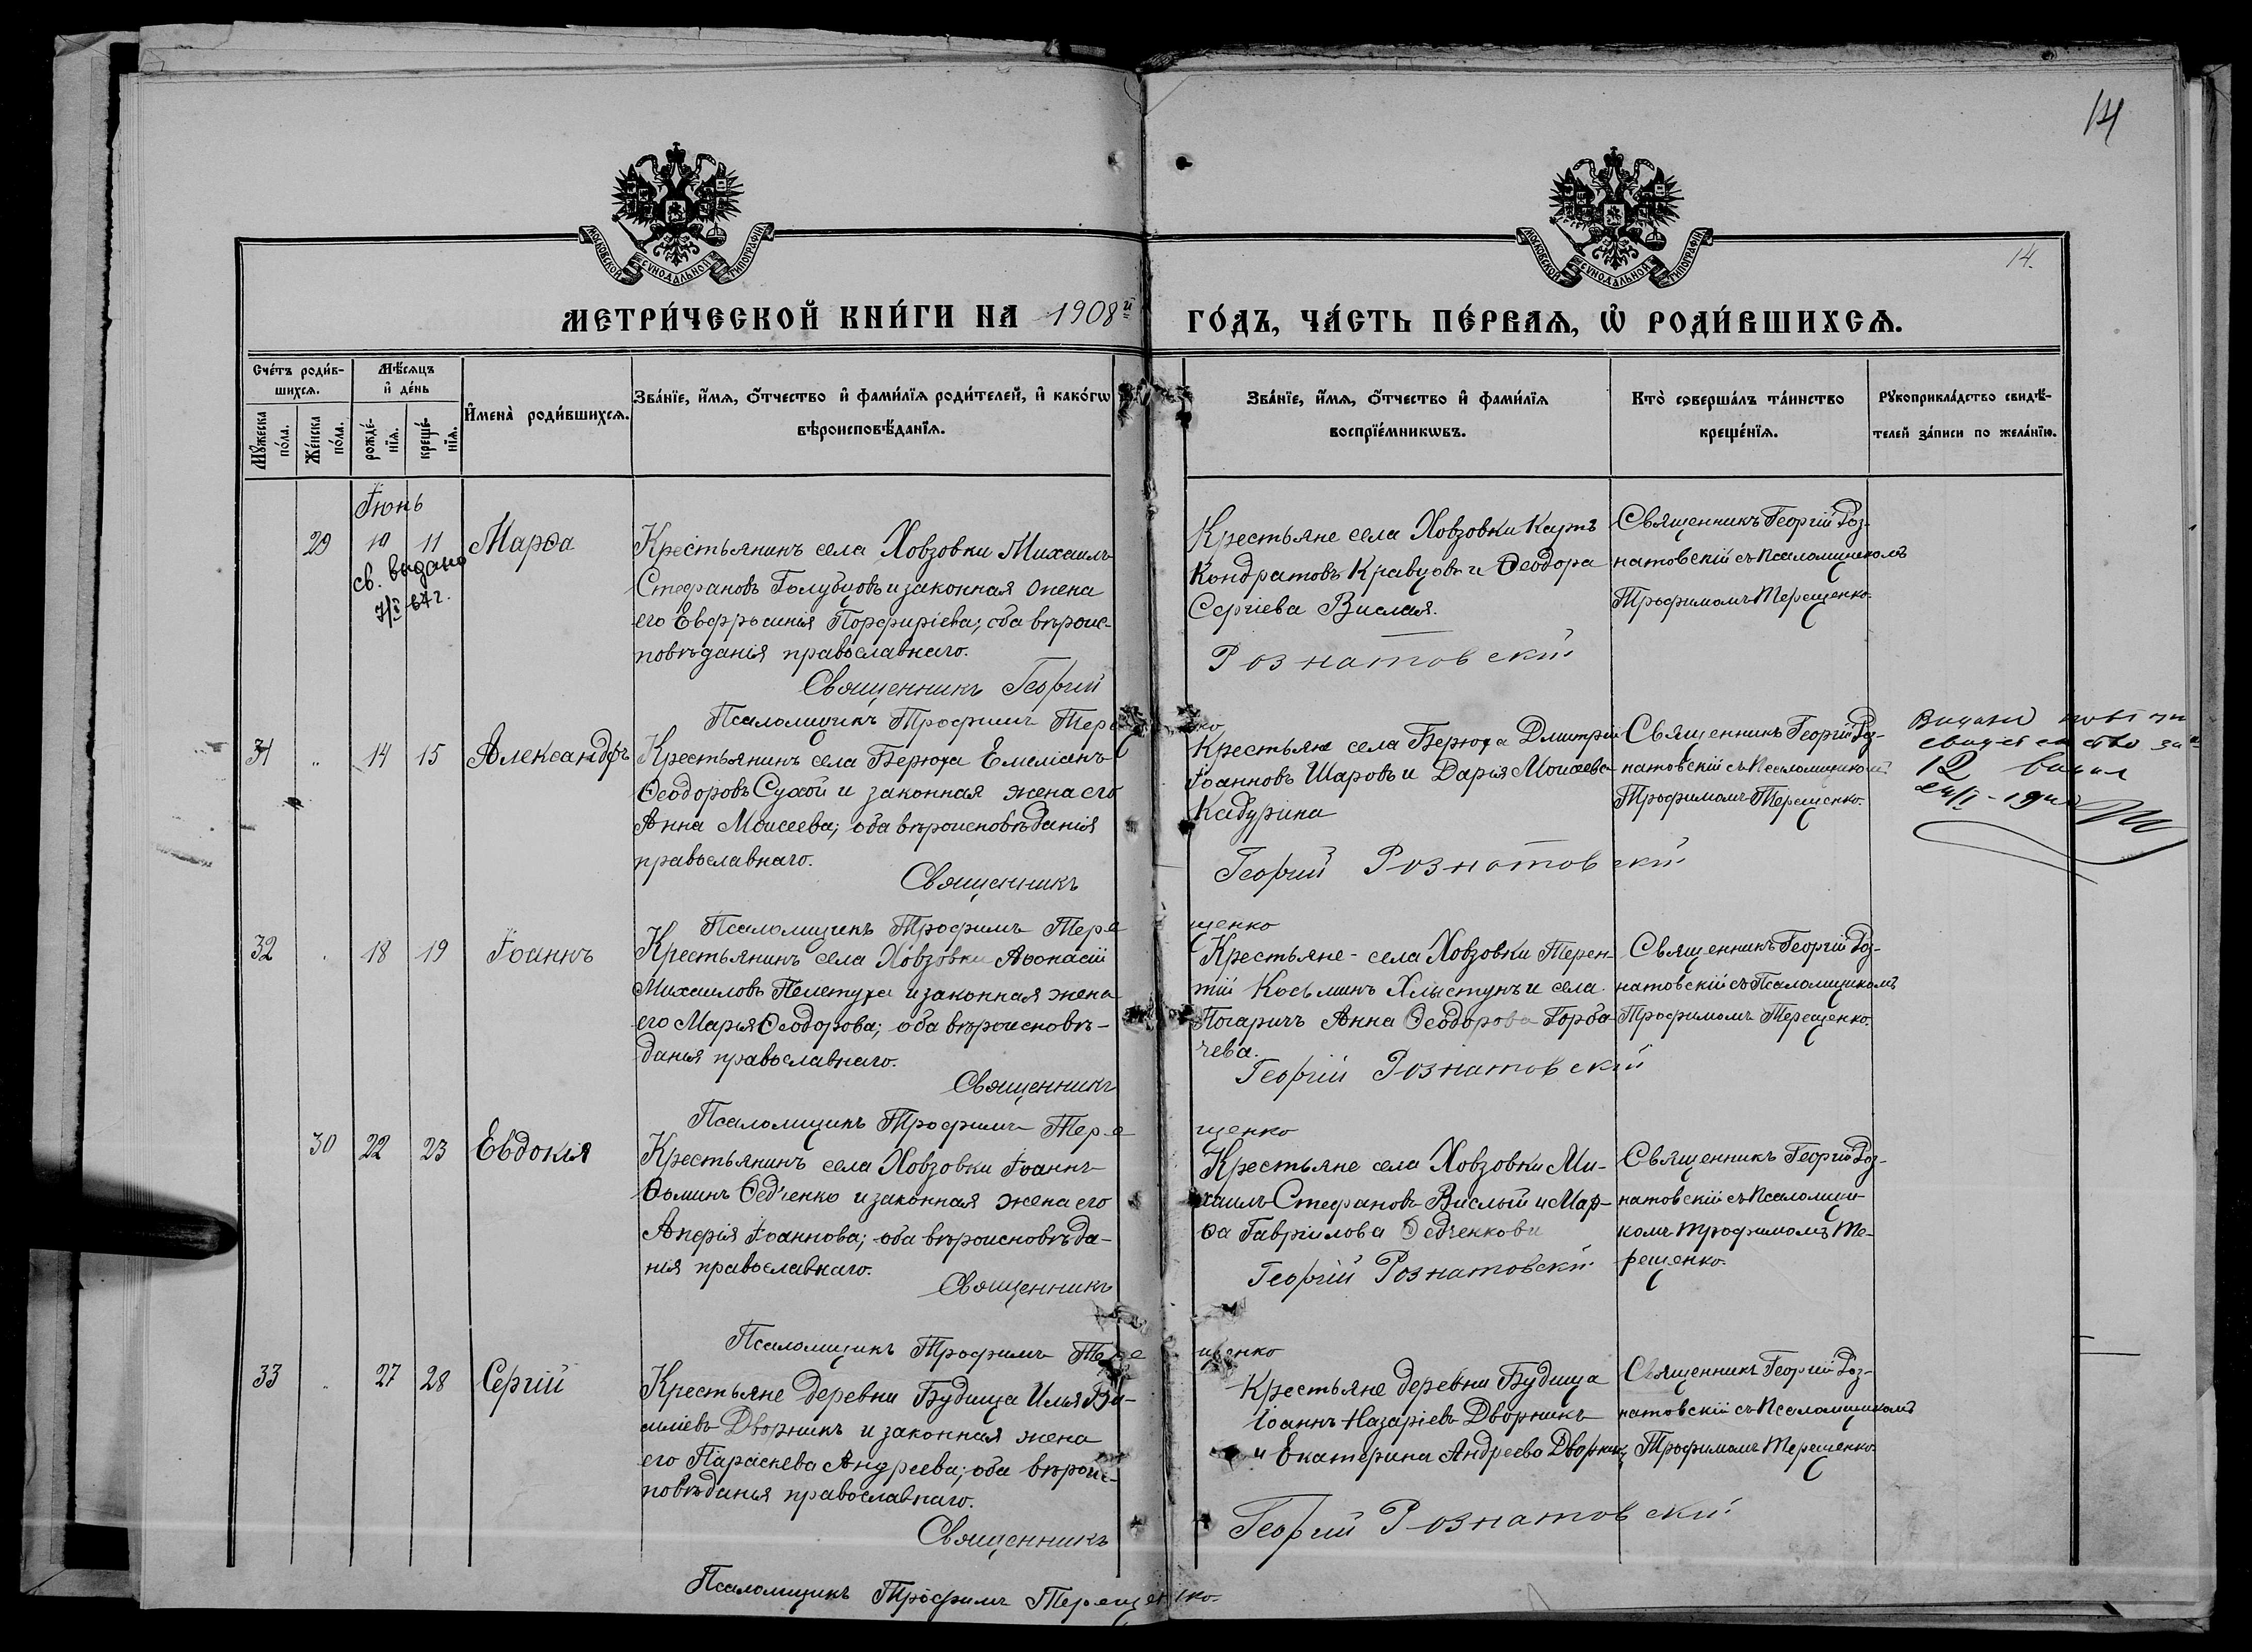 14
14.
МОСКОВСКОЙ СѴНОДАЛЬНОЙ ТИПОГРАФІИ
МОСКОВСКОЙ СѴНОДАЛЬНОЙ ТИПОГРАФІИ
МЕТРИ́ЧЕСКОЙ КНИ́ГИ НА 1908й ГО́ДЪ, ЧА́СТЬ ПЕ́РВАѦ, Ѡ҆ РОДИ́ВШИХСѦ.
Сче́тъ роди́в-
шихсѧ.
Мꙋ́жеска
по́ла.
Же́нска
по́ла.
Мѣ́сѧцъ
и҆ де́нь
рожде́-
нїѧ.
креще́-
нїѧ.
И҆мена̀ роди́вшихсѧ.
Зва́нїе, и҆́мѧ, ѻ҆́тчество и҆ фами́лїѧ роди́телей, и҆ како́гѡ
вѣроисповѣ́данїѧ.
Зва́нїе, и҆́мѧ, ѻ҆́тчество и҆ фами́лїѧ
воспрїе́мникѡвъ.
Кто̀ соверша́лъ та́инство
креще́нїѧ.
Рꙋкоприкла́дство свидѣ́-
телей за́писи по жела́нїю.
Іюнь
29 10 11 Марѳа
св. выдано
7/I-64 г.
Крестьянинъ села Ховзовки Михаилъ
Стефановъ Голубцовъ и законная жена
его Евфросинія Порфиріева; оба вѣроис-
повѣданія православнаго.
Священникъ Георгій
Псаломщикъ Трофимъ Тере
Крестьяне села Ховзовки Карпъ
Кондратовъ Кравцовъ и Ѳеодора
Сергіева Вислая.
Рознатовскій
Священникъ Георгій Роз-
натовскій съ Псаломщикомъ
Трофимомъ Терещенко.
31 " 14 15 Александръ
Крестьянинъ села Берюха Емеліанъ
Ѳеодоровъ Сухой и законная жена его
Анна Моисеева; оба вѣроисповѣданія
православнаго.
Священникъ
Псаломщикъ Трофимъ Тере
Крестьяне села Берюха Дмитрій
Іоанновъ Шаровъ и Дарія Моисеева
Кадурина
Георгій Рознатовскій
щенко
Священникъ Георгій Роз-
натовскій съ Псаломщикомъ
Трофимомъ Терещенко.
32 18 19 Іоаннъ
Крестьянинъ села Ховзовки Аѳонасій
Михаиловъ Пелетуха и законная жена
его Марія Ѳеодорова; оба вѣроисповѣ-
данія православнаго.
Священникъ
Псаломщикъ Трофимъ Тере
Крестьяне села Ховзовки Терен-
тій Косьминъ Хлыстунъ и села
Погаричъ Анна Ѳеодорова Горба-
чева.
Георгій Рознатовскій
щенко
Священникъ Георгій Роз-
натовскій съ Псаломщикомъ
Трофимомъ Терещенко.
30 22 23 Евдокія
Крестьянинъ села Ховзовки Іоаннъ
Ѳоминъ Ѳедченко и законная жена его
Іоаннова; оба вѣроисповѣда-
нія православнаго.
Священникъ
Псаломщикъ Трофимъ Тере
Крестьяне села Ховзовки Ми-
хаилъ Стефановъ Вислый и Мар-
ѳа Гавріилова Ѳедченкова
Георгій Рознатовскій
щенко
Священникъ Георгій Роз-
натовскій съ Псаломщи-
комъ Трофимомъ Те-
рещенко.
33 " 27 28 Сергій
Крестьяне деревни Будища Илья Ва-
силіевъ Дворникъ и законная жена
его Параскева Андреева; оба вѣроис-
повѣданія православнаго.
Священникъ
Псаломщикъ Трофимъ Терещенко.
Крестьяне деревни Будища
Іоаннъ Назаріевъ Дворникъ
и Екатерина Андреева Дворникъ
Георгій Рознатовскій
Священникъ Георгій Роз-
натовскій съ Псаломщикомъ
Трофимомъ Терещенко.